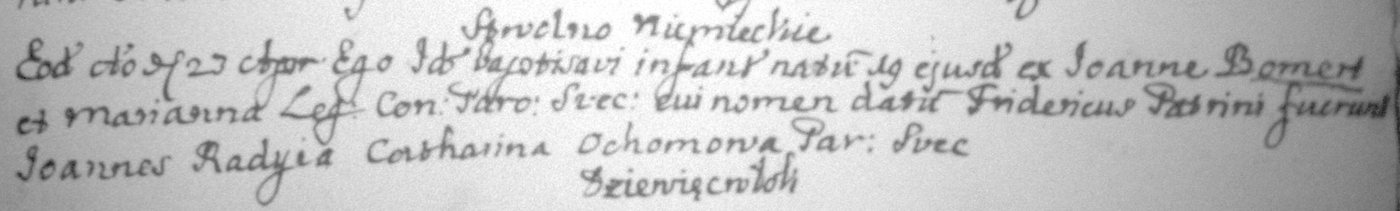 Strvelno Niemieckie
Eod d̃o 23 Ego Id̃ Baptisavi infant natũ 19 ejusd̃ ex Joanne Bomert
et Marianna Leg: Con: Paro: Svec: cui nomen datũ Fridericus Patrini fuerunt
Joannes Radyia Catharina Ochomowa Par: Svec